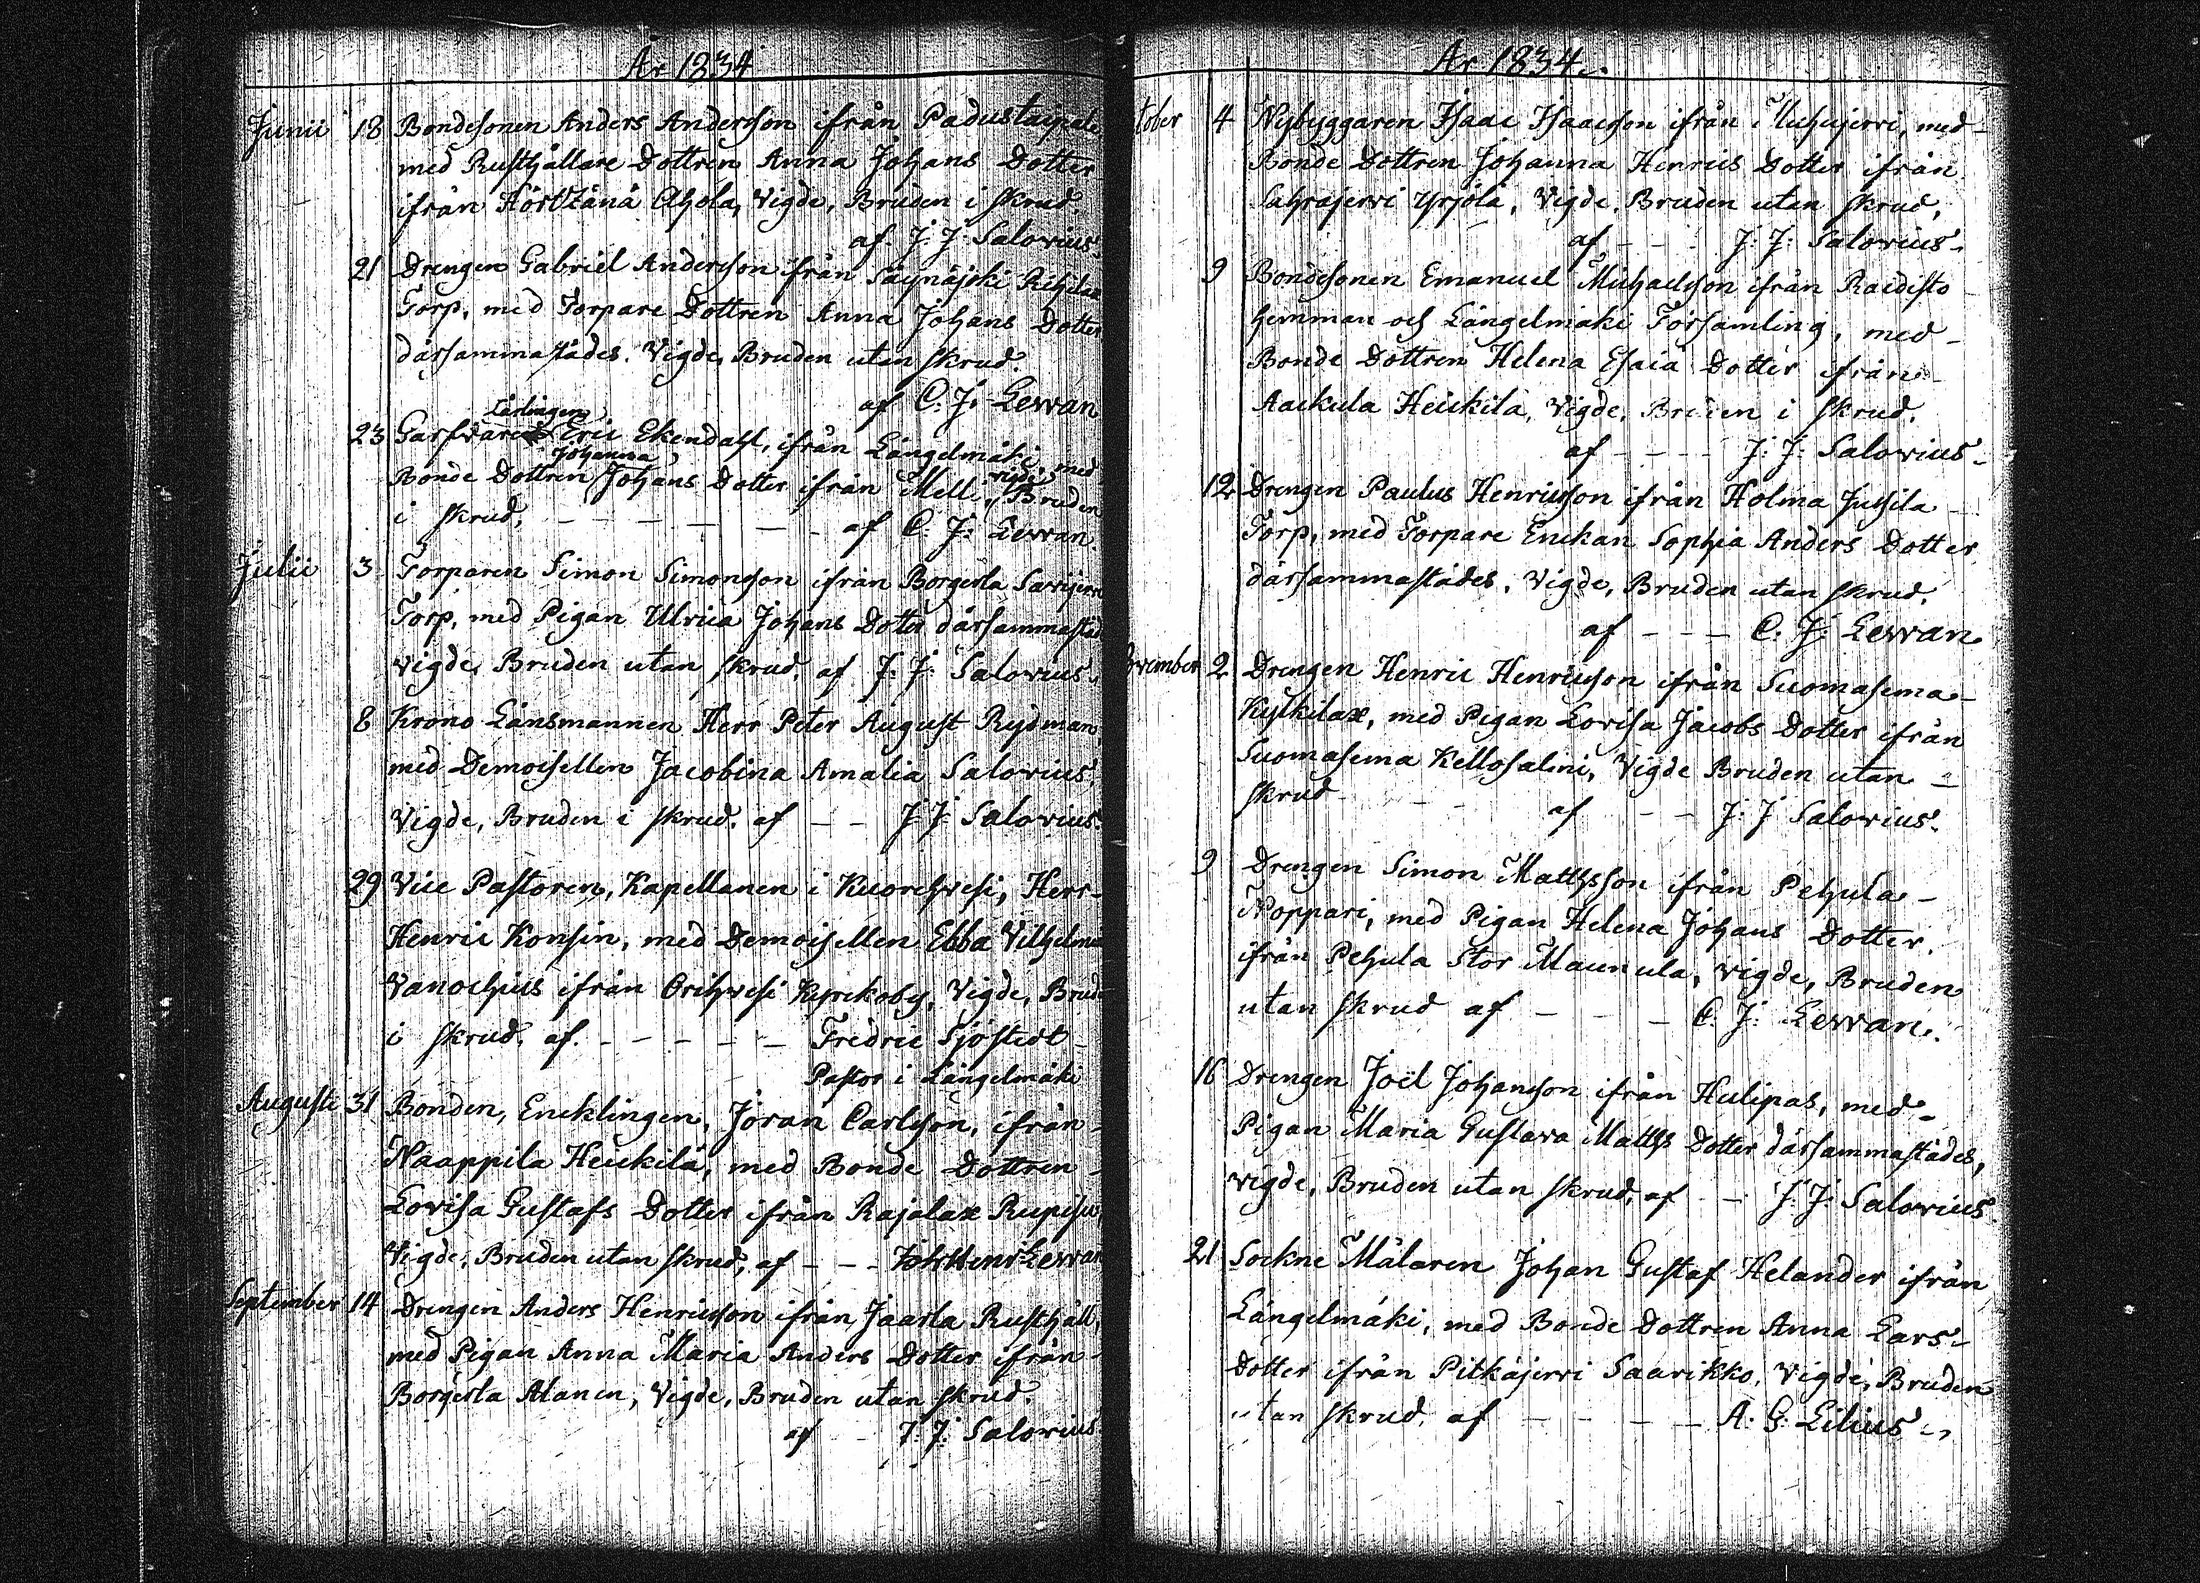 År 1834
Junii 18 Bondesonen Anders Andersson ifrån Padustaipale
med Rusthållare Dottren Anna Johans Dotter
ifrån Ahola, Vigde, Bruden i skrud.
af. J: J: Salovius.
21 Drengen Gabriel Andersson ifrån Säynäjoki
Torp, med Torpare Dottren Anna Johans Dotter
därsammastädes. Vigde, Bruden utan skrud.
af C. J. Lewan
Lärlingen
23 Garfvare Eric Ekendahl, ifrån Längelmäki, med
Johanna
Bonde Dottren Johans Dotter ifrån Melli, vigde Bruden
i skrud, – – – – – af C. J: Lewan.
Julii 3 Torparen Simon Simonsson ifrån Borgerla Savijervi
Torp, med Pigan Ulrica Johans Doter därsammastäd
vigde, Bruden utan skrud. af J. J: Salovius.
8 Krono Länsmannen Herr Peter August Rydman,
med Demoisellen Jacobina Amalia Salovius,
Vigde, Bruden i skrud. af – – J: J: Salovius.
29 Vice Pastoren, Kapellanen i Kuorehvesi, Herr
Henric Konsin, med Demoisellen Ebba Vilhelmina
Vanochius ifrån Orihvesi Kyrckoby, Vigde, Brud
i skrud. af. – – – – – Fredric Sjöstedt
Pastor i Längelmäki
Augusti 31 Bonden, Encklingen, Jöran Carlsson, ifrån
Naappila Heickilä, med Bonde Dottren
Lovisa Gustafs Dotter ifrån Rajalax
Vigde, Bruden utan skrud, af – – – Joh: Henr: Lewan
September 14 Drengen Anders Henricsson ifrån Jaarla Rusthåll,
med Pigan Anna Maria Anders Dotter ifrån
Borgerla Alanen, Vigde, Bruden utan skrud.
af – J. J: Salovius
År 1834.
tober 4 Nybyggaren Isaac Isaacsson ifrån Muhujerri, med
Bonde Dottren Johanna Henrics Dotter ifrån
Sahrajervi Yrjölä, Vigde. Bruden utan skrud,
af – – – J: J: Salovius.
9 Bondesonen Emanuel Michaelsson ifrån Raidisto
hemman och Längelmäki Församling, med
Bonde Dottren Helena Esaiæ Dotter ifrån
Aackula Heickilä, Vigde, Bruden i skrud.
af – – – J: J: Salovius
12 Drengen Paulus Henricsson ifrån Holma Jussila
Torp, med Torpare Enckan Sophia Anders Dotter
därsammastädes. Vigde, Bruden utan skrud.
af – – – C. J: Lewan
ovember 2 Drengen Henric Henricsson ifrån Suomasema
Kylkilax, med Pigan Lovisa Jacobs Dotter ifrån
Suomasema Kellosalmi, Vigde Bruden utan
skrud – – af – – J: J Salovius.
9 Drengen Simon Mattsson ifrån Pehula
Noppari, med Pigan Helena Johans Dotter
ifrån Pehula Stor Maunula, vigde, Bruden
utan skrud af – – – C. J: Lewan.
16 Drengen Joël Johansson ifrån Hulipas, med
Pigan Maria Gustava Matts Dotter därsammastädes,
vigde, Bruden utan skrud, af – – J: J: Salovius.
21 Sockne Målaren Johan Gustaf Helander ifrån
Längelmäki, med Bonde Dottren Anna Lars
Dotter ifrån Pitkäjerri Saarikko, Vigde, Bruden
utan skrud. af – – – – A: G: Lilius